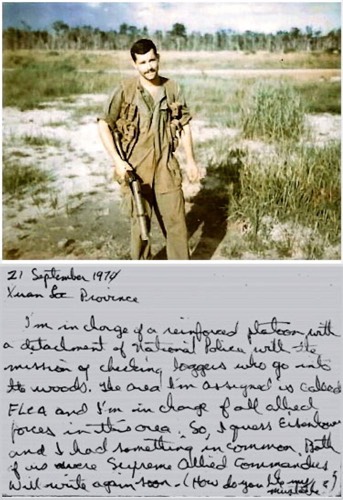 21 September 1970
Xuan Loc Province
I'm in charge of a reinforced platoon with
a detachment of National Police, with the
mission of checking loggers who go into
the woods. The area I'm assigned is called
FLCA and I'm in charge of all allied
forces in this area. So, I guess Eisenhower
and I had something in common. Both
of us were Supreme Allied Commanders.
Will write again soon. (How do you like my
mustache?)